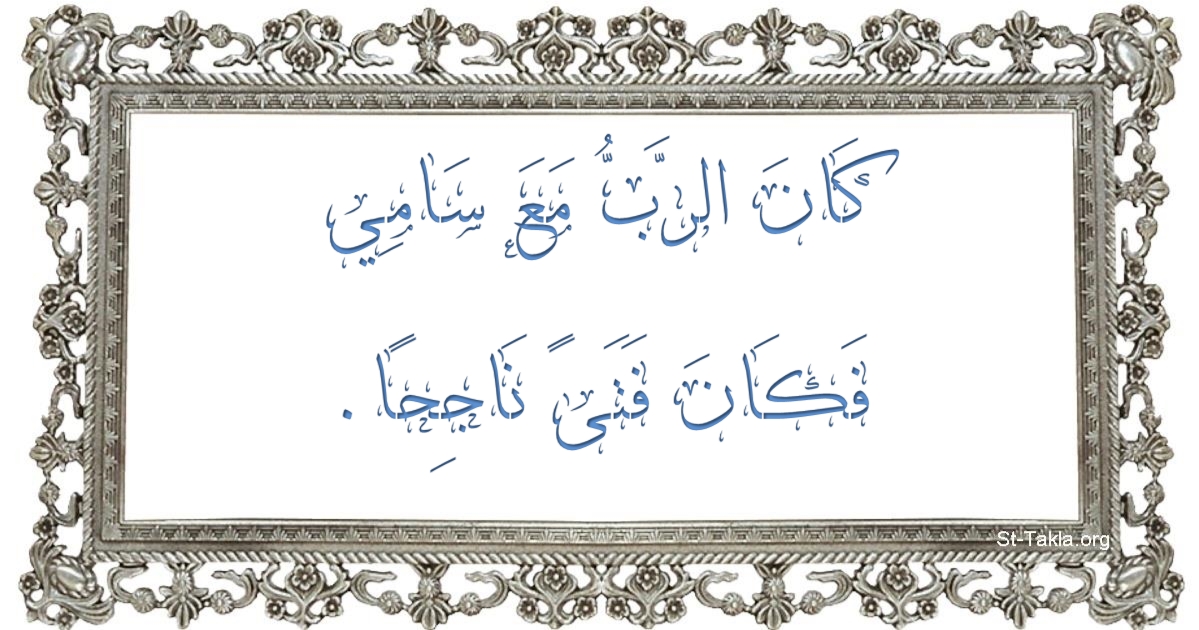 كَانَ الرَّبُّ مَعَ سَامِي
فَكَانَ فَتَىً نَاجِحًا .
St-Takla.org